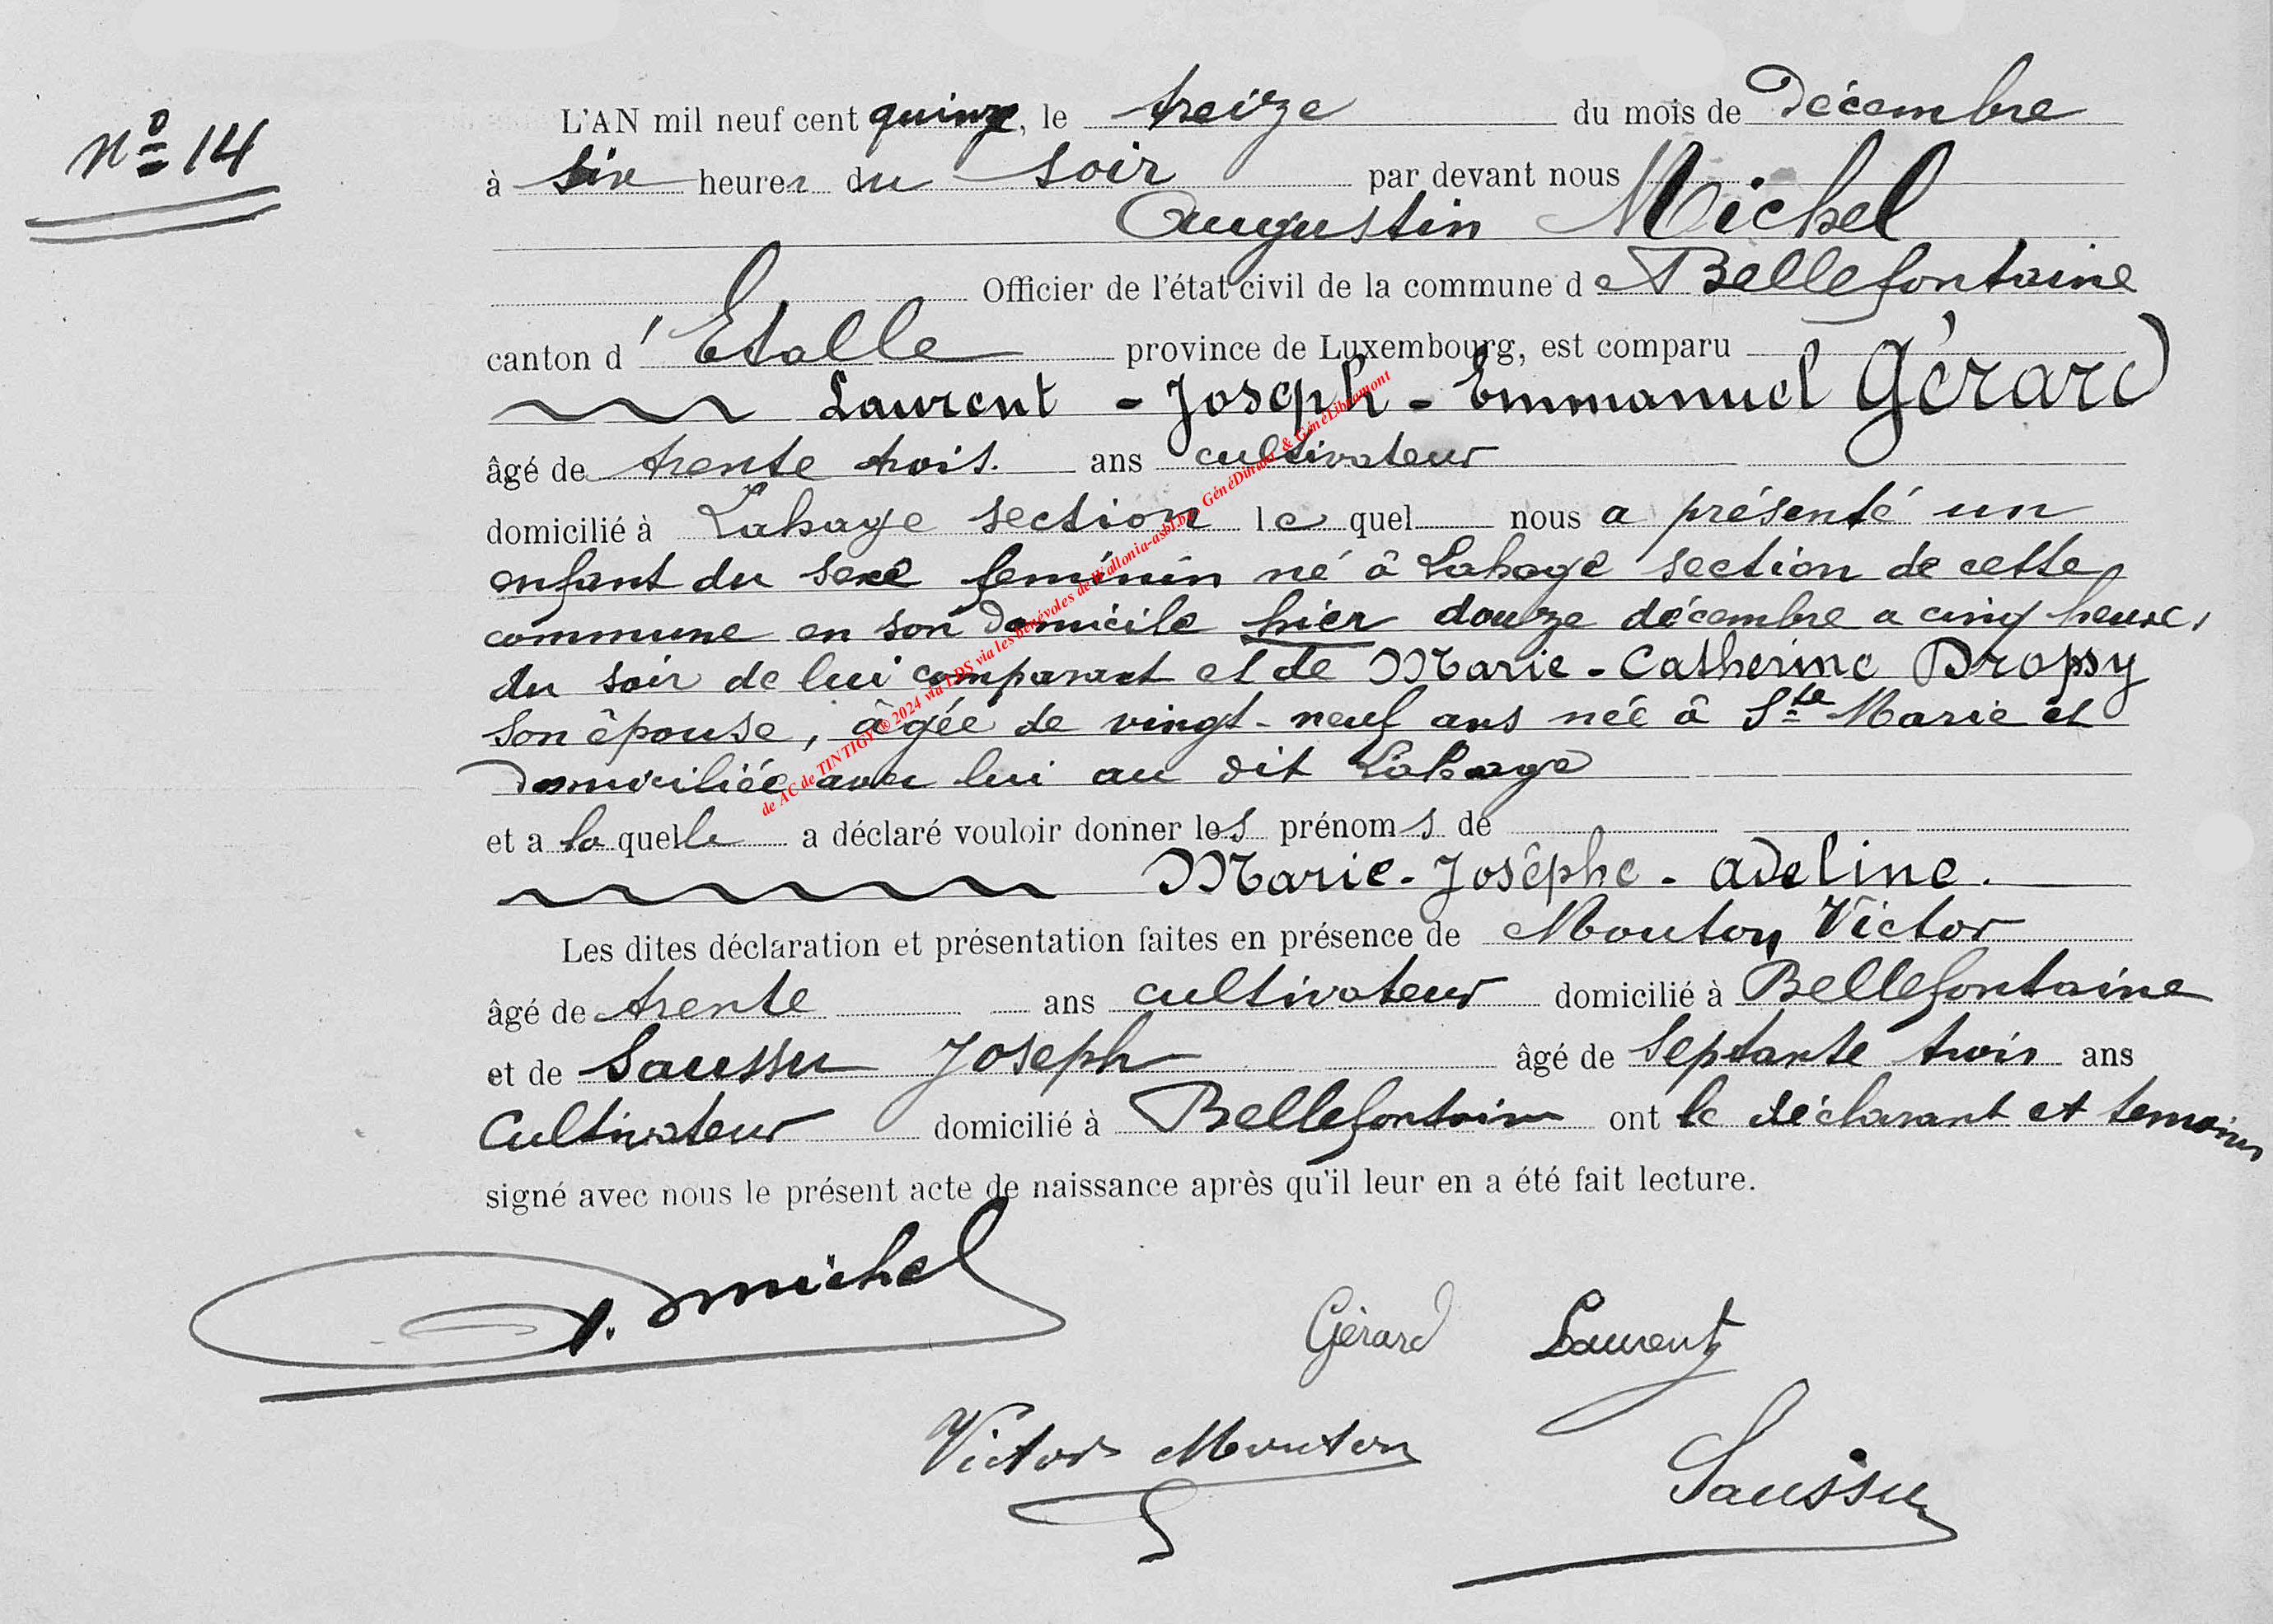 N° 14
L'AN mil neuf cent quinze, le treize du mois de Décembre
à six heures du soir par devant nous
Augustin Michel
Officier de l'état civil de la commune de Bellefontaine
canton d'Etalle province de Luxembourg, est comparu
Laurent - Joseph - Emmanuel Gérard
âgé de trente trois. ans cultivateur
domicilié à Lahage section le quel nous a présenté un
enfant du sexe féminin né à Lahage section de cette
commune en son domicile hier douze décembre a cinq heures
du soir de lui comparant et de Marie - Catherine Dropsy
son épouse, âgée de vingt-neuf ans née à Ste Marie et
domiciliée avec lui au dit Lahage
et a laquelle a déclaré vouloir donner les prénoms de
Marie - Josèphe - Adeline.
Les dites déclaration et présentation faites en présence de Mouton Victor
âgé de trente ans cultivateur domicilié à Bellefontaine
et de Saussu Joseph âgé de septante trois ans
Cultivateur domicilié à Bellefontaine ont le déclarant et temoins
signé avec nous le présent acte de naissance après qu'il leur en a été fait lecture.
A. Michel
Gérard Laurent
Victor Mouton
Saussu
de AC de TINTIGY © 2024 via LDS via les bénévoles de Wallonia-asbl.be, GénéDinant & GénéLibramont